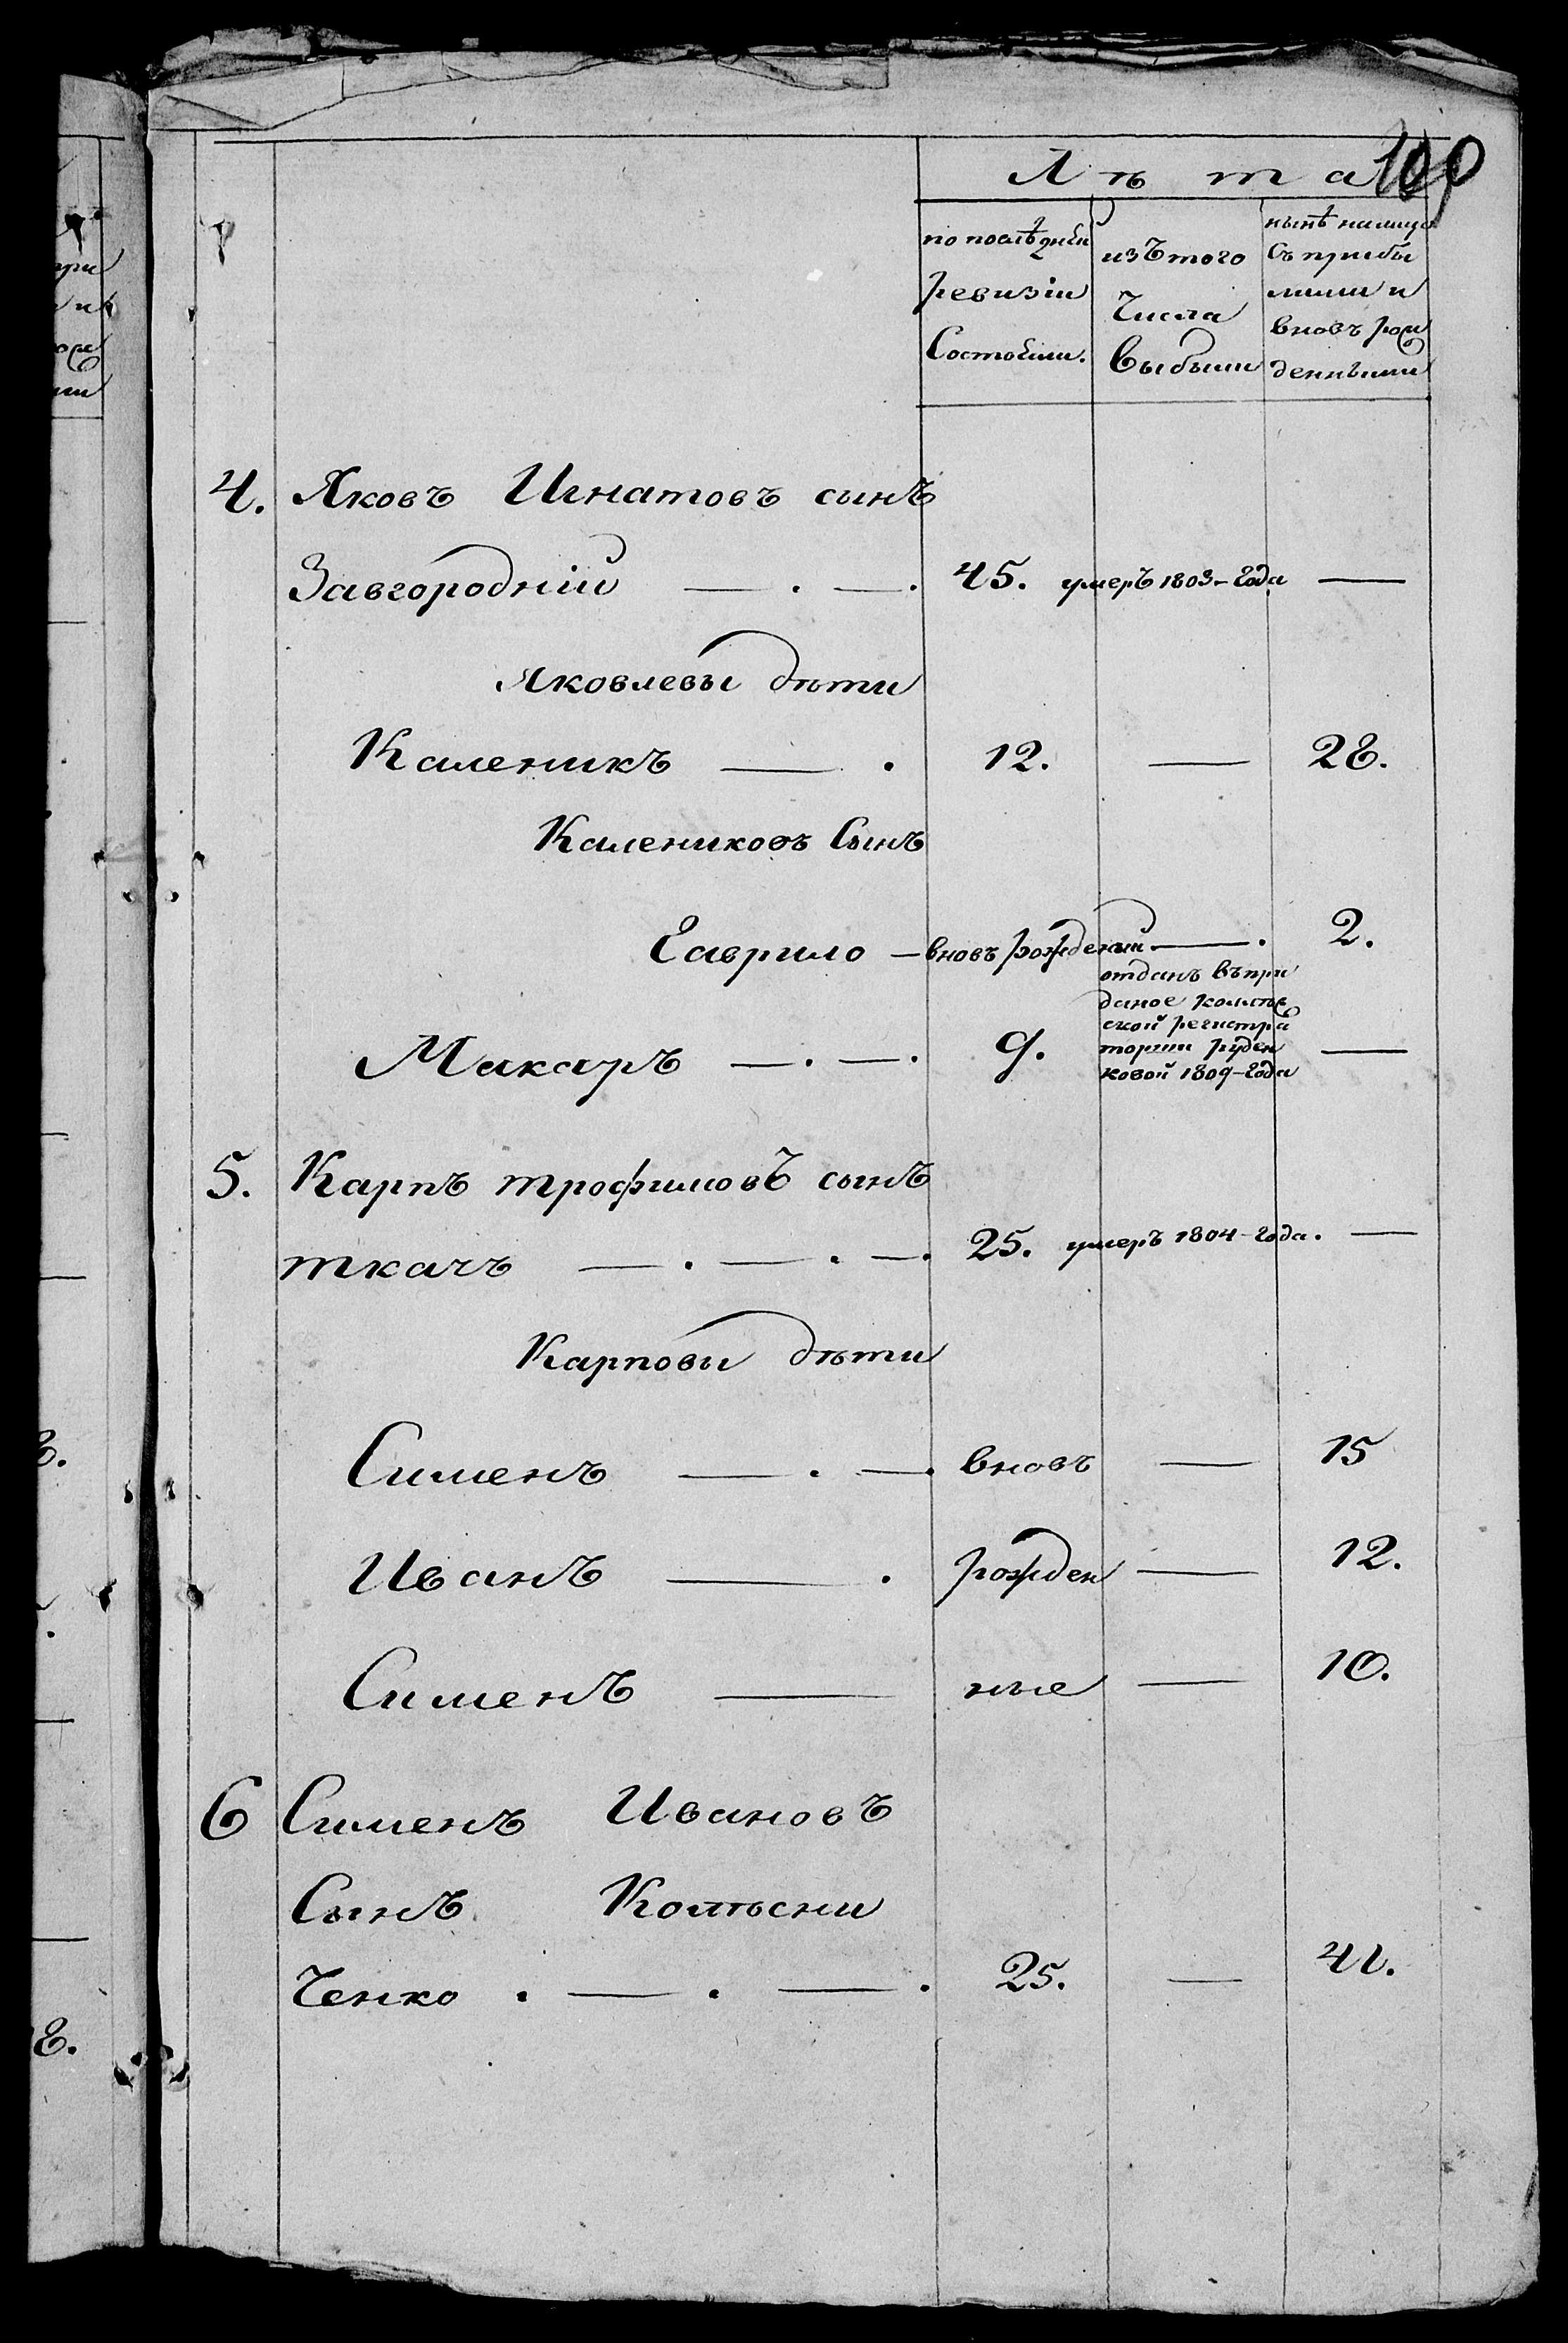 Лѣта
100
по послѣдней
ревизіи
Состояли.
изъ того
Числа
выбыли
нынѣ налицо
съ прибы
лыми и
вновь рож
денными
4. Яковъ Игнатовъ сынъ
Завгородній — . — . 45. умеръ 1803-года —
Яковлевы дѣти
Каленикъ — . 12. — 28.
Калениковъ Сынъ
Гаврило — вновь рожденый — . 2.
отданъ въ при
даное колѣж
ской регистра
Макаръ — . — . 9. торши Руден —
ковой 1809-года
5. Карпъ трофимовъ сынъ
ткачъ — . — . — . 25. умеръ 1804-года. —
Карповы дѣти
Сименъ — . — . вновь — 15
Иванъ — . рожден — 12.
Сименъ — ные — 10.
6 Сименъ Ивановъ
Сынъ Колѣсни
Ченко . — . — . 25. — 41.